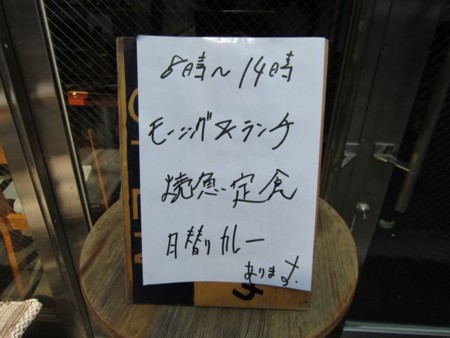 8時〜14時
モーニング&ランチ
焼魚定食
日替りカレー
あります。